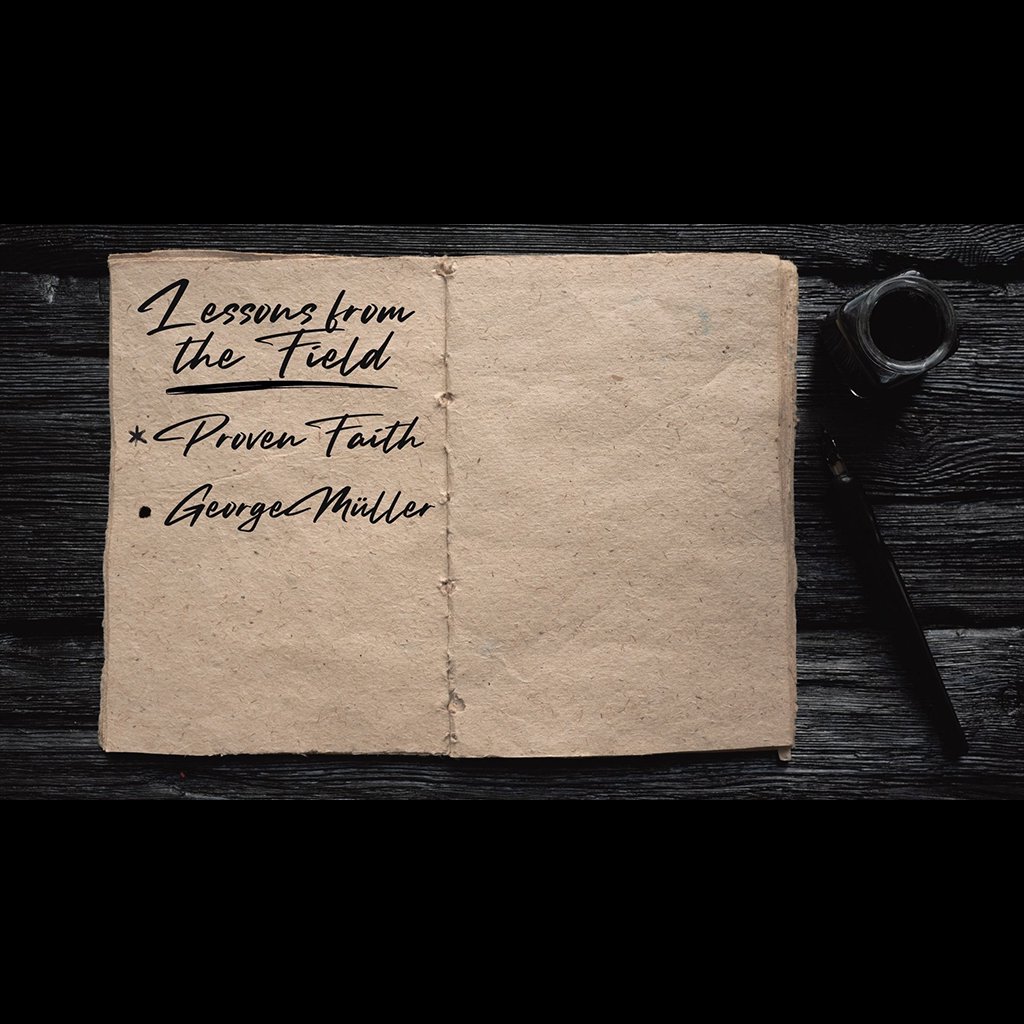 Lessons from
the Field
* Proven Faith
• George Müller